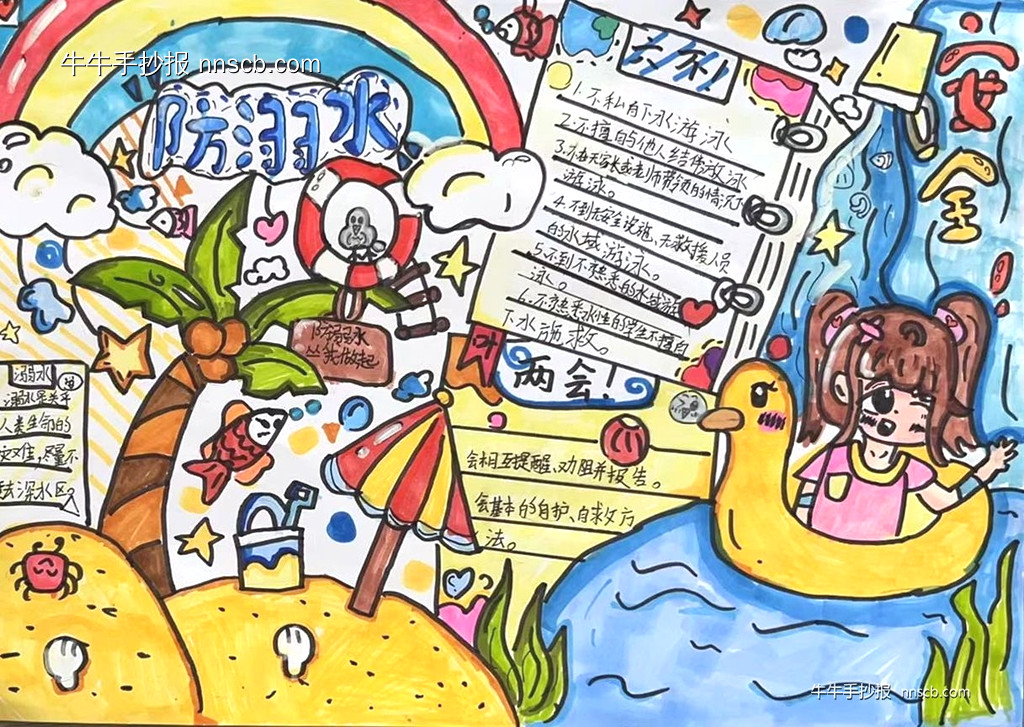 牛牛手抄报 nnscb.com
防溺水
安全!
六不!
1.不私自下水游泳
2.不擅自与他人结伴游泳
3.不在无家长或老师带领的情况下
游泳。
4.不到无安全设施、无救援人员
的水域游泳。
5.不到不熟悉的水域游
泳。
6.不熟悉水性的学生不擅自
下水施救。
防溺水
从我做起
两会!
会相互提醒、劝阻并报告。
会基本的自护、自救方
法。
溺水
溺水是关乎
人类生命的
灾难,尽量不
去深水区
牛牛手抄报 nnscb.com